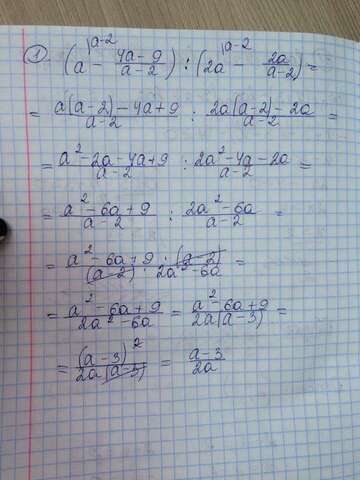 1) (a^{\a-2} - \frac{4a-9}{a-2}) : (2a^{\a-2} - \frac{2a}{a-2}) =
= \frac{a(a-2)-4a+9}{a-2} : \frac{2a(a-2)-2a}{a-2} =
= \frac{a^2-2a-4a+9}{a-2} : \frac{2a^2-4a-2a}{a-2} =
= \frac{a^2-6a+9}{a-2} : \frac{2a^2-6a}{a-2} =
= \frac{a^2-6a+9 \cdot (a-2)}{(a-2) \cdot 2a^2-6a} =
= \frac{a^2-6a+9}{2a^2-6a} = \frac{a^2-6a+9}{2a(a-3)} =
= \frac{(a-3)^2}{2a(a-3)} = \frac{a-3}{2a}